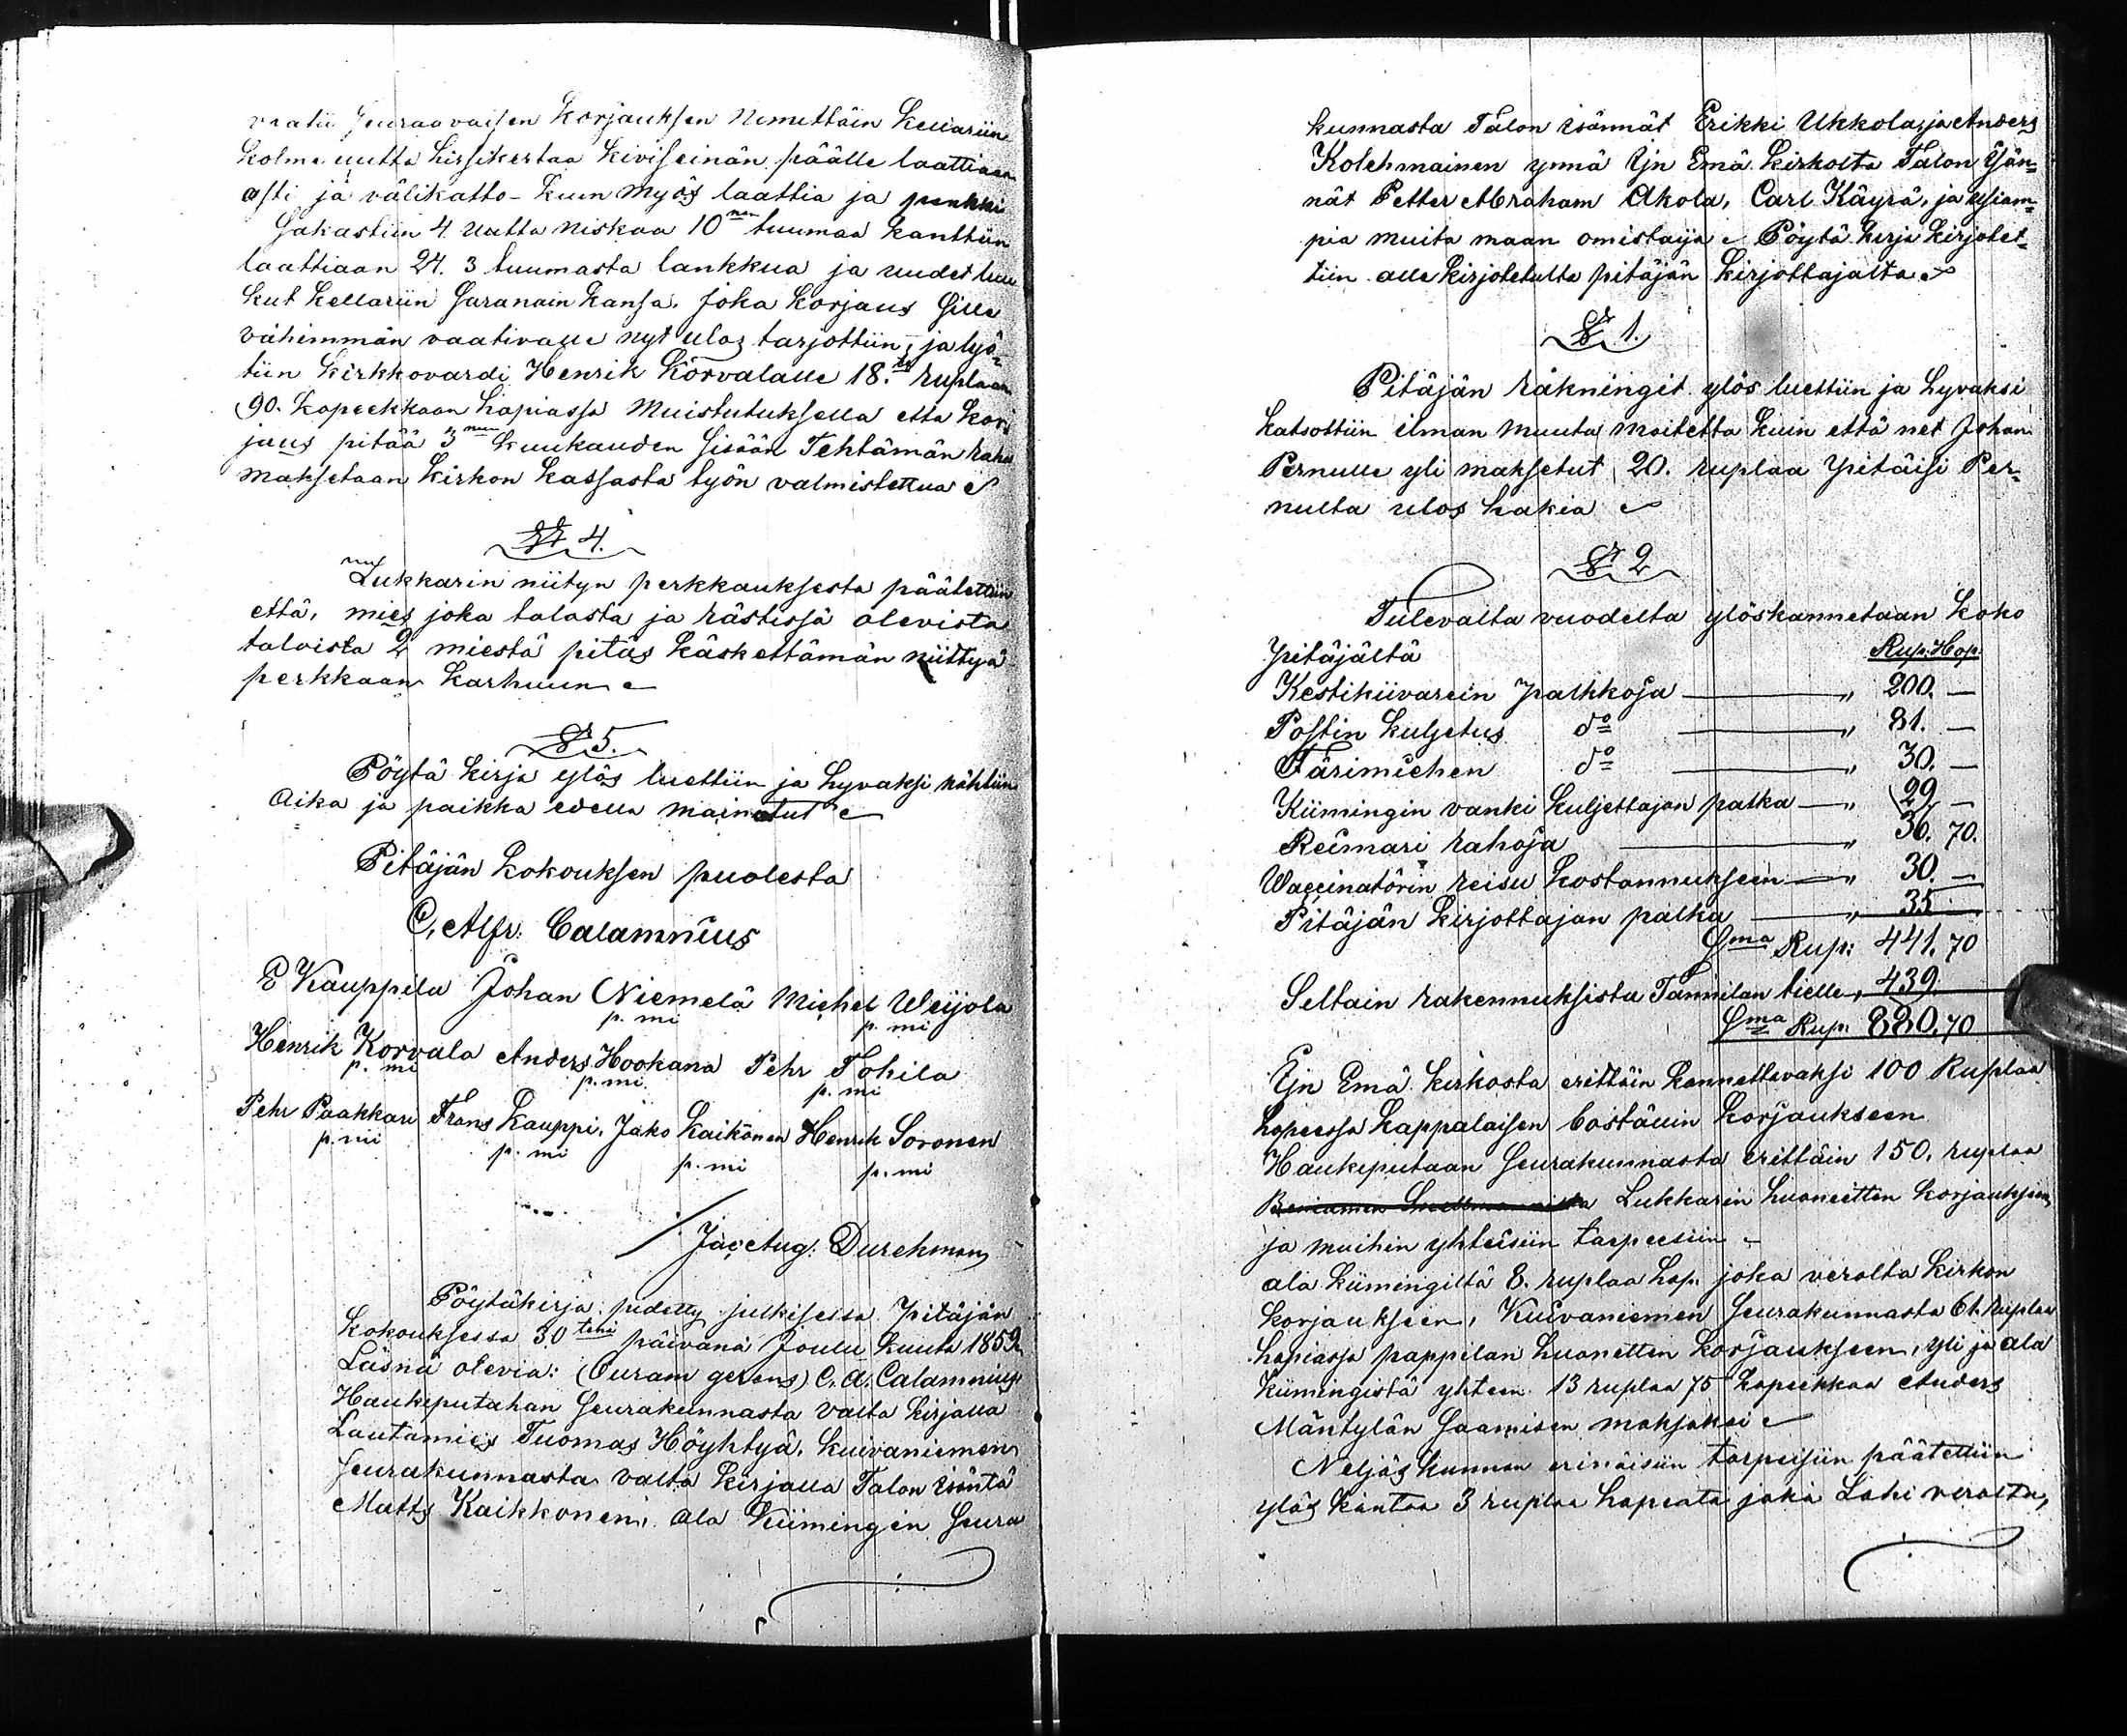 vaatii seuraavaisen Korjauksen Nimittäin Kellariin
Kolme uutta hirsikertaa Kiviseinän päälle laattiaan
asti ja välikatto- kuin myös laattia ja penkki
Sakastiin 4 uutta niskaa 10nen tuumaa kanttiin
laattiaan 24. 3 tuumasta lankkua ja uudet luu
kut Kellariin Saranain kansa, joka Korjaus Sille
vähimmän vaativalle nyt ulos tarjottiin, ja lyö-
tiin Kirkkovardi Henrik Körvalalle 18. ruplaan
90. Kopeekkaan hopiassa Muistutuksella etta Kor-
jaus pitää 3men Kuukauden Sisään Tehtämän raha
maksetaan Kirkon Kassasta työn valmistettua
§ 4.
Lukkarin niityn perkkauksesta päätettiin
että, mies joka talosta ja rästissä olevista
taloista 2 miestä pitäs Käskettämän niittyä
perkkaan Karhuun
§ 5.
Pöytä Kirja ylös luettiin ja hyvaksi nähtiin
Aika ja paikka edellä mainitut
Pitäjän Kokouksen puolesta
C. Alfr. Calamnius
E Kauppila Johan Niemelä Michel Weijola
p. mi p. mi
Henrik Korvala Anders Hookana Pehr Tohila
p. mi p. mi p. mi
Pehr Paakkari Frans Kauppi, Jako Kaikonen Henrik Soronen
p. mi p. mi p. mi p. mi
Jac Aug: Durchman
Pöytäkirja pidetty julkisessa Pitäjän
Kokouksessa 30tenä päivänä Joulu Kuuta 1859
Läsnä olevia: (Curam gerens) C. A. Calamnius
Haukiputahan Seurakunnasta valta Kirjalla
Lautamies Tuomas Höyhtyä, Kuivaniemen
Seurakunnasta valta Kirjalla Talon isäntä
Matts Kaikkonen, ala Kiimingin Seura
kunnasta Talon isännät Erikki Ukkola, ja Anders
Kolehmainen ynnä Ijn Emä Kirkolta Talon Isän-
nät Petter Abraham Akola, Carl Käyrä, ja usiam-
pia muita maan omistaija Pöytä kirja Kirjotet-
tiin alle Kirjotetulta pitäjän Kirjottajalta
§ 1.
Pitäjän räkningit ylös luettiin ja hyvaksi
Katsottiin ilman muuta moitetta Kuin että net Johan
Pernulle yli maksetut 20. ruplaa pitäisi Per-
nulta ulos hakia
§ 2
Tulevalta vuodelta ylöskannetaan Koko
pitäjältä Rup. Hop
Kestikiivarein palkkoja — " 200. —
Postin Kuljetus do — " 81. —
Färimiehen do — " 30. —
Kiimingin vanki Kuljettajan palka — " 29 —
Reimari rahoja — " 36. 70.
Waccinatörin reisu Kostannukseen — " 30. —
Pitäjän Kirjottajan palka — " 35
Sma Rup: 441. 70
Seltain rakennuksista Tannilan tielle, 439.
Sma Rup: 880. 70
Ijn Emä Kirkosta erittäin Kannettavaksi 100 Ruplaa
hopeessa Kappalaisen boställin Korjaukseen
Haukiputaan Seurakunnasta erittäin 150. ruplaa
Lukkarin huoneitten Korjauksen
ja muihin yhteisiin tarpeesiin
ala Kiimingiltä 8. ruplaa hop. joka verolta Kirkon
Korjaukseen, Kuivaniemen Seurakunnasta 61. Ruplaa
hopiassa pappilan huonetten Korjaukseen, yli ja ala
Kiimingistä yhteen 13 ruplaa 75 Kopeekkaa Anders
Mäntylän Saamisen maksoksi
Neljäs Kunnan erinäisiin tarpeisiin päätettiin
ylös Kantaa 3 ruplaa hopeata joka Lohi verolta,